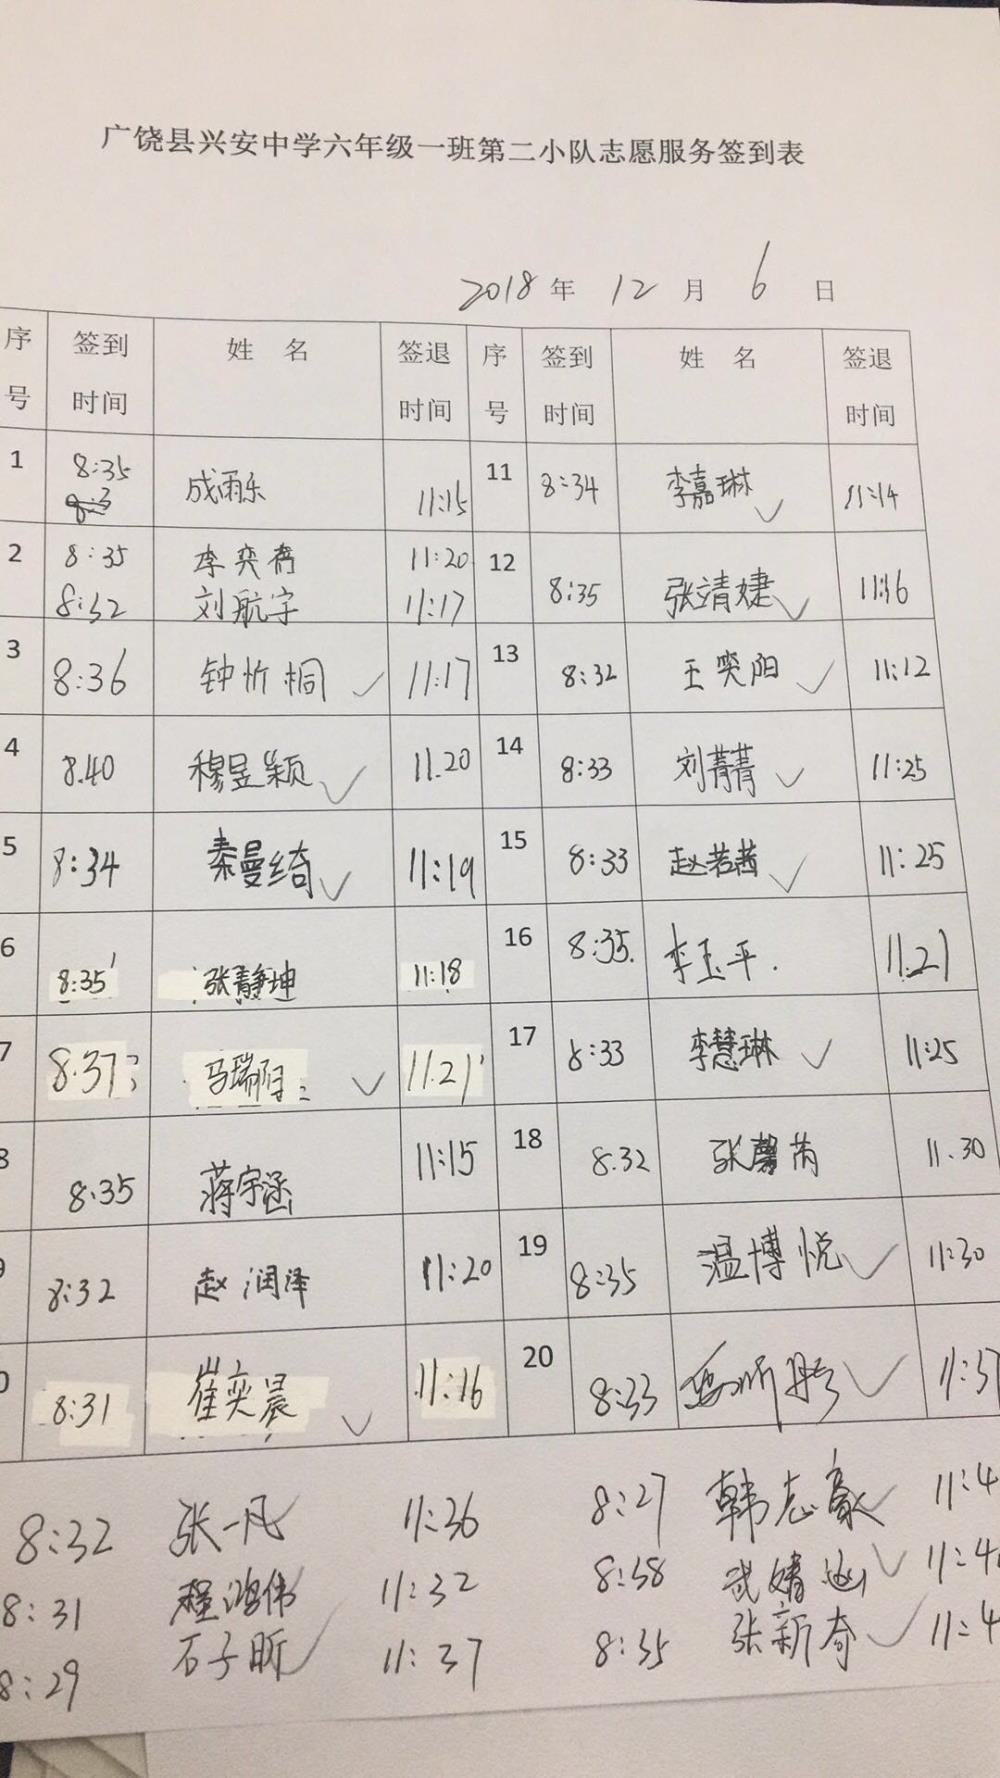 广饶县兴安中学六年级一班第二小队志愿服务签到表
2018 年 12 月 6 日
序号 签到时间 姓 名 签退时间 序号 签到时间 姓 名 签退时间
1 8:35 成雨乐 11:15 11 8:34 李嘉琳 11:14
2 8:35 李奕 11:20 12 8:35 张靖婕 11:16
8:32 刘航宇 11:17
3 8:36 钟忻桐 11:17 13 8:32 王奕阳 11:12
4 8.40 穆昱颖 11.20 14 8:33 刘菁菁 11:25
5 8:34 秦曼绮 11:19 15 8:33 赵若茜 11:25
6 8:35 张静坤 11:18 16 8:35. 李玉平. 11.21
7 8.37 马瑞阳 11.21 17 8:33 李慧琳 11:25
8 8.35 蒋宇涵 11:15 18 8.32 张馨 11.30
8:32 赵润泽 11:20 19 8:35 温博悦 11:30
0 8:31 崔奕晨 11:16 20 8:33 11:37
8:32 张一凡 11:36 8:27 韩志豪 11:4
8:31 程鸿伟 11:32 8:38 武婧 11:4
8:29 石子昕 11:37 8:35 张新奇 11:4